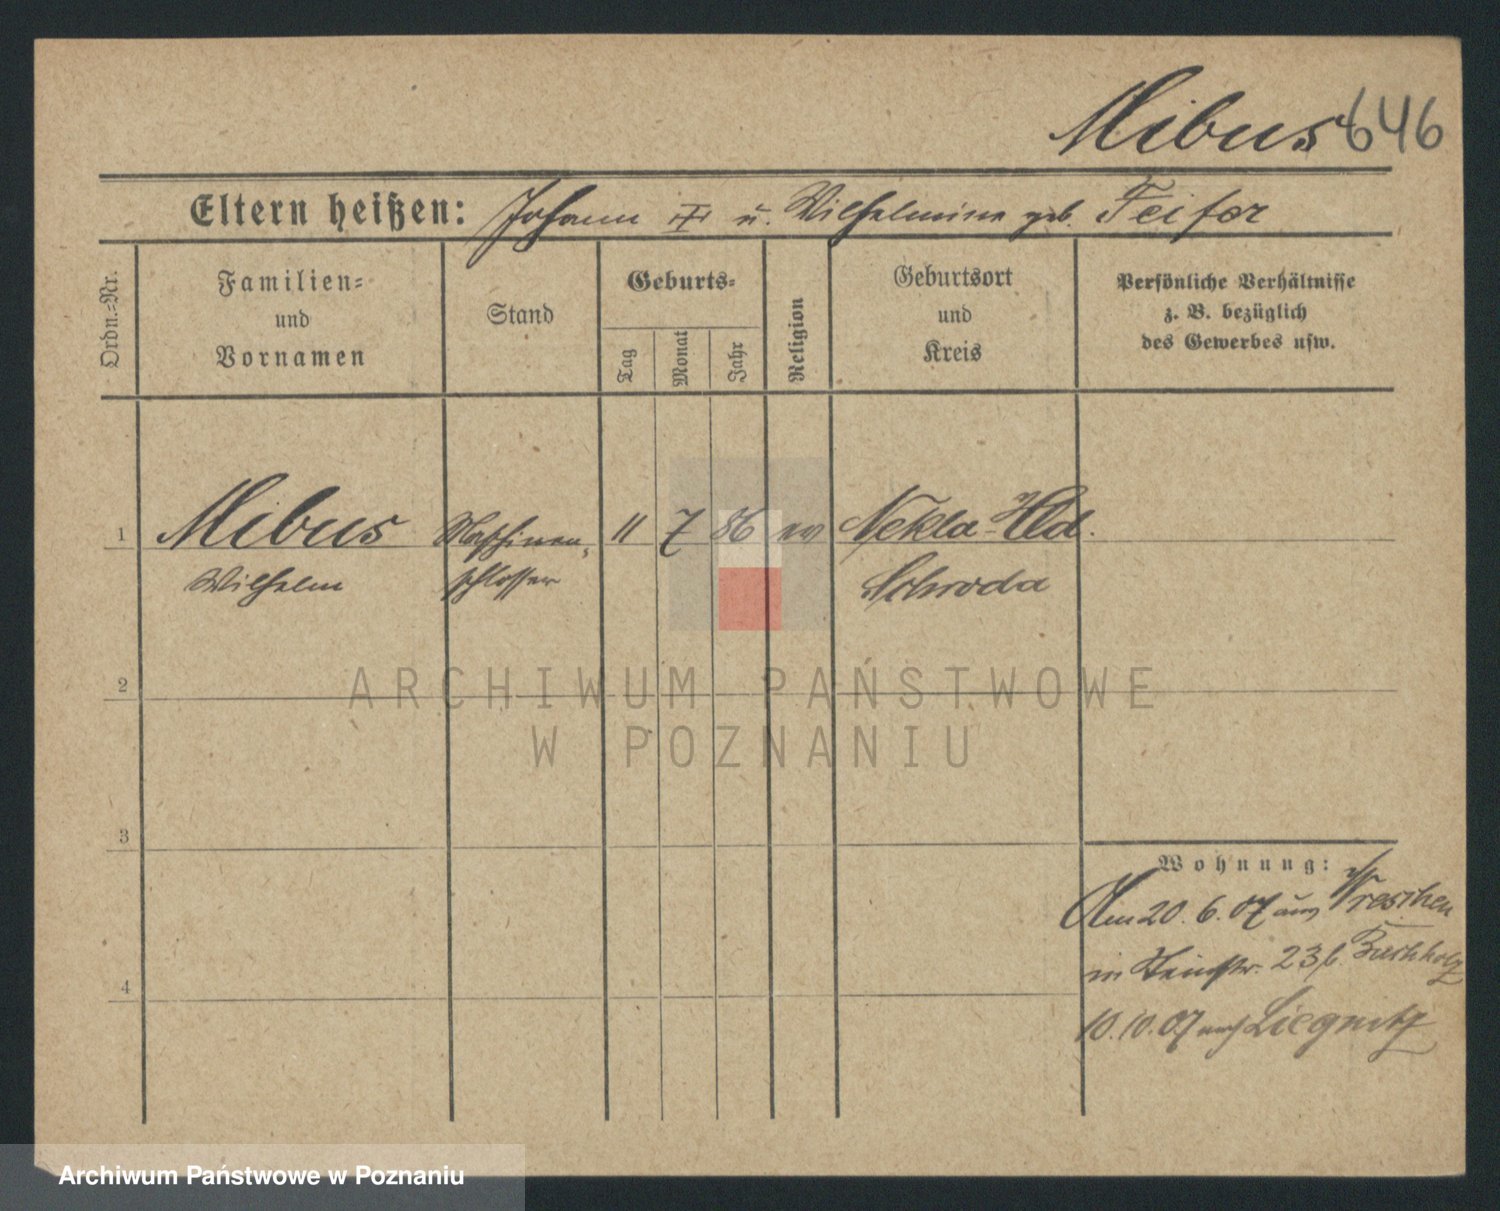 Mibus 646
Eltern heißen: Johann u. Wilhelmine geb. Feifer
Ordn.-Nr.
Familien- und Vornamen
Stand
Geburts-
Tag
Monat
Jahr
Religion
Geburtsort und Kreis
Persönliche Verhältnisse
z. B. bezüglich
des Gewerbes usw.
1 Mibus Maschinen- 11 7 86 ev Nekla-Hld.
Wilhelm schlosser Schroda
2
ARCHIWUM PAŃSTWOWE
W POZNANIU
3
Wohnung:
Am 20.6.07 aus Wreschen
in 23 b. Buchholz
4
10.10.07 nach Liegnitz
Archiwum Państwowe w Poznaniu